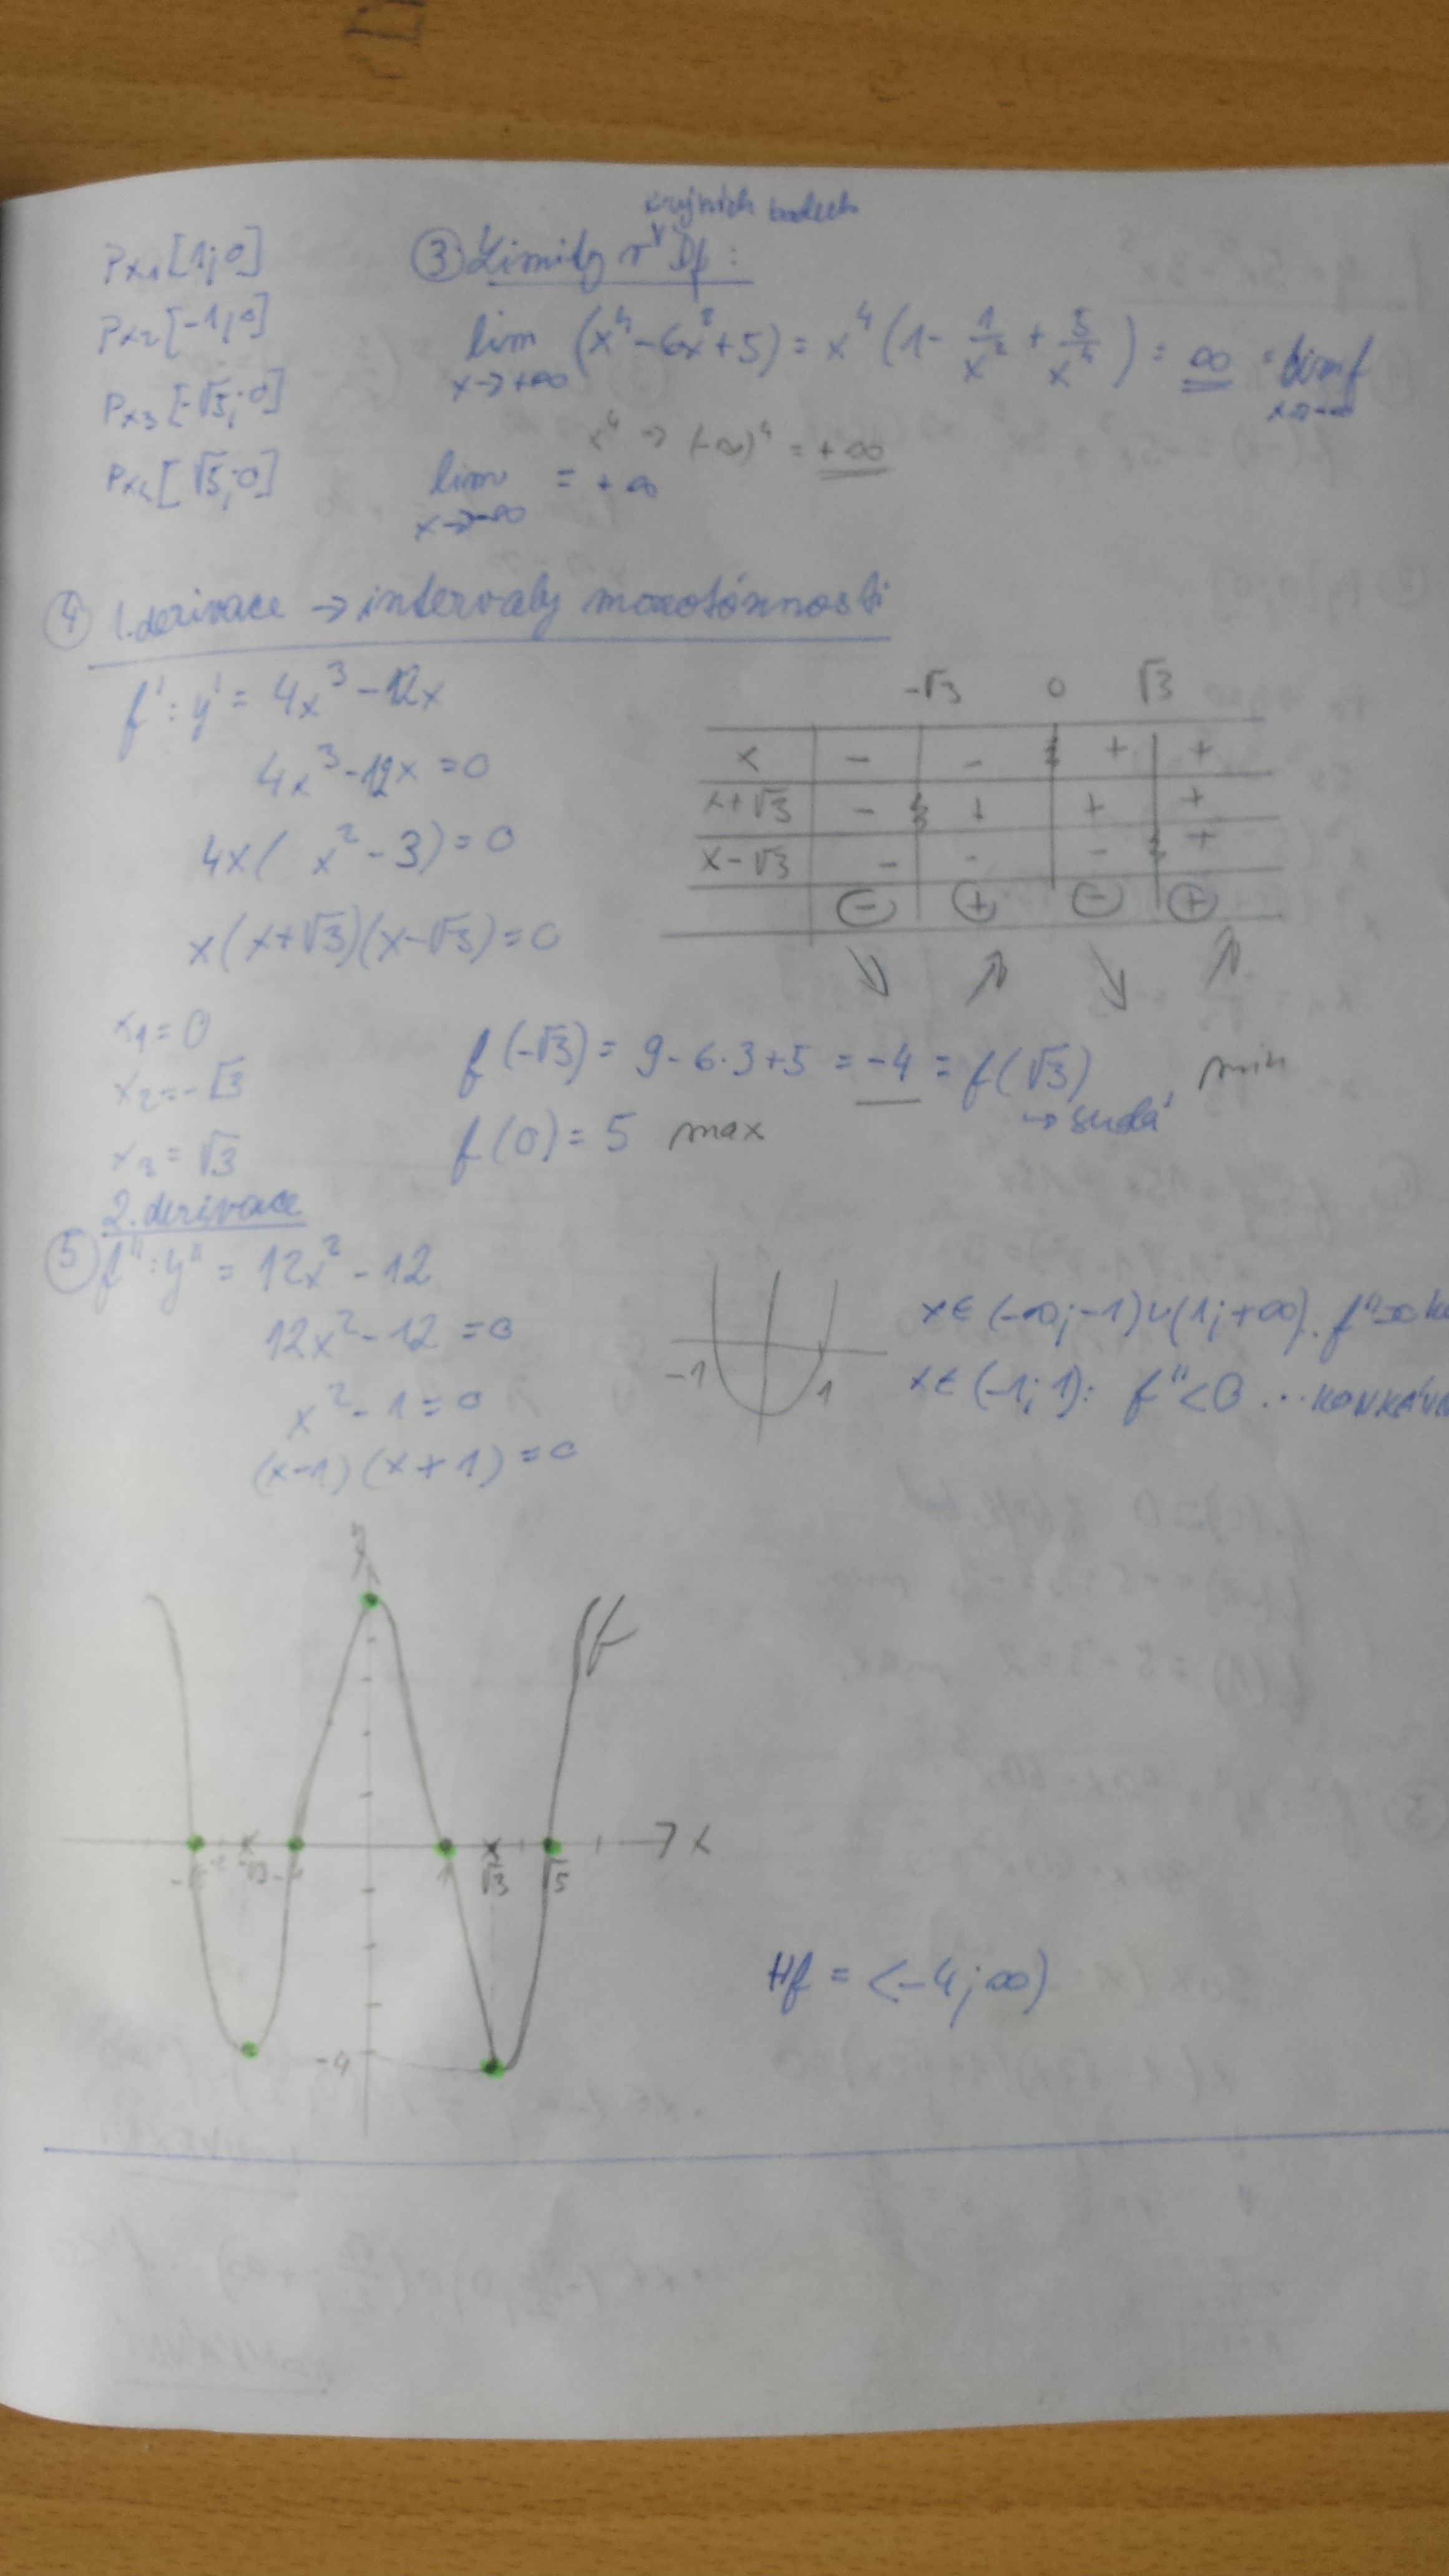 Px1 [1; 0]
Px2 [-1; 0]
Px3 [-√5; 0]
Px4 [√5; 0]
krajních bodech
③ Limity v Df:
lim x→+∞ (x⁴ - 6x² + 5) = x⁴ (1 - 1/x² + 5/x⁴) = ∞ = lim f x→-∞
x⁴ → (-∞)⁴ = +∞
lim x→-∞ = +∞
④ 1. derivace → intervaly monotónnosti
f': y' = 4x³ - 12x
4x³ - 12x = 0
4x( x² - 3) = 0
x(x+√3)(x-√3) = 0
x1 = 0
x2 = -√3
x3 = √3
-√3 0 √3
x - - + +
x+√3 - + + +
x-√3 - - - +
⊖ ⊕ ⊖ ⊕
↘ ↗ ↘ ↗
f(-√3) = 9 - 6·3 + 5 = -4 = f(√3) min
→ sudá
f(0) = 5 max
2. derivace
⑤ f'': y'' = 12x² - 12
12x² - 12 = 0
x² - 1 = 0
(x-1)(x+1) = 0
-1 1
x∈(-∞;-1)∪(1;+∞)
x∈(-1;1): f''<0 ...
y
f
x
-√3
1 √3 √5
-4
Hf = <-4; ∞)